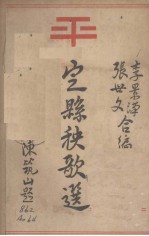 李景漢
張世文合編
定縣秧歌選
陳筑山題